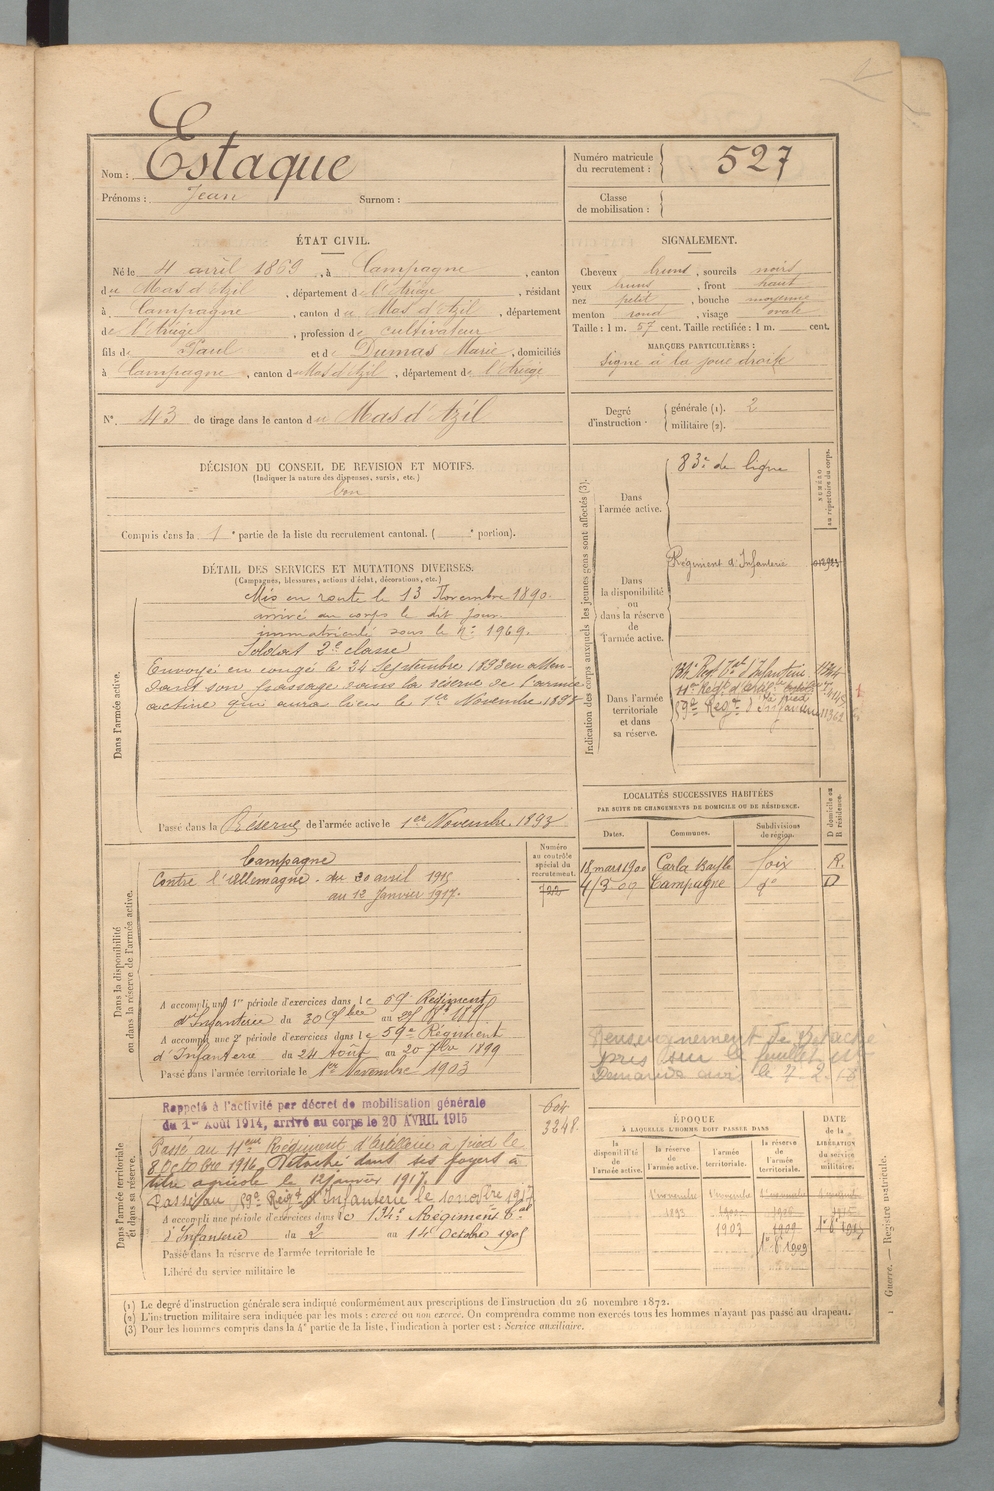 Nom : Estaque
Prénoms : Jean Surnom :
Numéro matricule du recrutement : 527
Classe de mobilisation :
ÉTAT CIVIL.
Né le 4 avril 1869, à Campagne, canton
du Mas d'Azil, département de l'Ariège, résidant
à Campagne, canton du Mas d'Azil, département
de l'Ariège, profession de cultivateur
fils de Paul et de Dumas Marie, domiciliés
à Campagne, canton du Mas d'Azil, département de l'Ariège
N° 43 de tirage dans le canton du Mas d'Azil
SIGNALEMENT.
Cheveux bruns, sourcils noirs
yeux bruns, front haut
nez petit, bouche moyenne
menton rond, visage ovale
Taille : 1 m. 57 cent. Taille rectifiée : 1 m. cent.
MARQUES PARTICULIÈRES :
Signe à la joue droite
Degré d'instruction. générale (1). 2
militaire (2).
DÉCISION DU CONSEIL DE REVISION ET MOTIFS.
(Indiquer la nature des dispenses, sursis, etc.)
bon
Compris dans la 1e partie de la liste du recrutement cantonal. ( e portion).
DÉTAIL DES SERVICES ET MUTATIONS DIVERSES.
(Campagnes, blessures, actions d'éclat, décorations, etc.)
Dans l'armée active.
Mis en route le 13 Novembre 1890.
arrivé au corps le dit jour
immatriculé sous le N° 1969.
Soldat 2e classe
Envoyé en congé le 24 Septembre 1893 en atten-
dant son passage dans la réserve de l'armée
active qui aura lieu le 1er Novembre 1893
Passé dans la Réserve de l'armée active le 1er Novembre 1893
Indication des corps auxquels les jeunes gens sont affectés (3).
NUMÉRO au répertoire du corps.
Dans l'armée active.
83e de ligne
Dans la disponibilité ou dans la réserve de l'armée active.
Régiment d'Infanterie
Dans l'armée territoriale et dans sa réserve.
134e Regt Tal d'Infanterie
11e Regt d'artie à pied
LOCALITÉS SUCCESSIVES HABITÉES
PAR SUITE DE CHANGEMENTS DE DOMICILE OU DE RÉSIDENCE.
Dates. Communes. Subdivisions de région. D domicile ou R résidence.
18 mars 1900 Carla Bayle Foix R.
4/3 07 Campagne do D
Dans la disponibilité ou dans la réserve de l'armée active.
Numéro au contrôle spécial du recrutement.
722
Campagne
Contre l'Allemagne. du 20 avril 1915
au 12 Janvier 1917.
A accompli une 1re période d'exercices dans le 59 Régiment
d'Infanterie du
A accompli une 2e période d'exercices dans le 59e Régiment
d'Infanterie du 24 Août au 20 7bre 1899
Passé dans l'armée territoriale le 1er Novembre 1903
Renseignement
pris sur le feuillet
Demande
Dans l'armée territoriale et dans sa réserve.
604
3248
Rappelé à l'activité par décret de mobilisation générale
du 1er Août 1914, arrivé au corps le 20 AVRIL 1915
Passé au 11eme Régiment d'Artillerie à pied le
8 Octobre 1916 Détaché dans ses foyers à
titre agricole le 12 janvier 1917.
Passé au Regt d'Infanterie le
A accompli une période d'exercices dans le 134e Régiment Tal
d'Infanterie du 2 au 14 Octobre 1905
Passé dans la réserve de l'armée territoriale le
Libéré du service militaire le
ÉPOQUE
À LAQUELLE L'HOMME DOIT PASSER DANS
la disponibilité de l'armée active.
la réserve de l'armée active.
l'armée territoriale.
la réserve de l'armée territoriale.
DATE de la LIBÉRATION du service militaire.
1 novembre 1893
1 novembre 1903
1909
(1) Le degré d'instruction générale sera indiqué conformément aux prescriptions de l'instruction du 26 novembre 1872.
(2) L'instruction militaire sera indiquée par les mots : exercé ou non exercé. On comprendra comme non exercés tous les hommes n'ayant pas passé au drapeau.
(3) Pour les hommes compris dans la 4e partie de la liste, l'indication à porter est : Service auxiliaire.
Guerre. — Registre matricule.